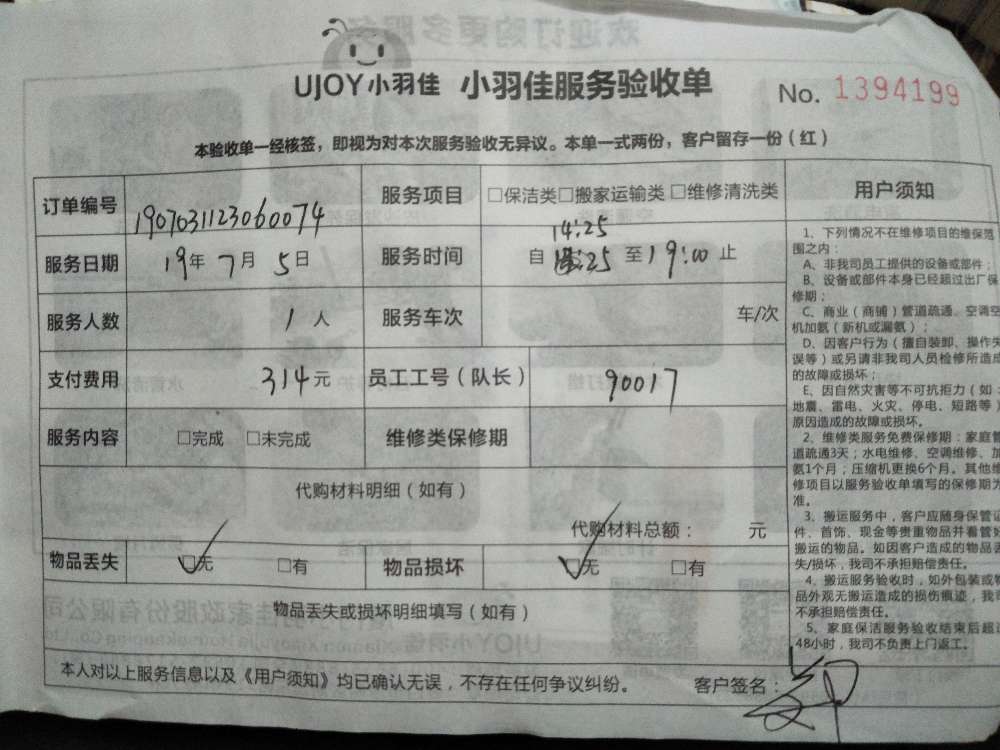 UJOY小羽佳 小羽佳服务验收单 No. 1394199
本验收单一经核签，即视为对本次服务验收无异议。本单一式两份，客户留存一份（红）
订单编号 1907031123060074 服务项目 □保洁类□搬家运输类□维修清洗类
服务日期 19年7月5日 服务时间 14:25
自 至19:00止
服务人数 1人 服务车次 车/次
支付费用 314元 员工工号（队长） 90017
服务内容 □完成 □未完成 维修类保修期
代购材料明细（如有）
代购材料总额： 元
物品丢失 ☑无 □有 物品损坏 ☑无 □有
物品丢失或损坏明细填写（如有）
本人对以上服务信息以及《用户须知》均已确认无误，不存在任何争议纠纷。 客户签名：
用户须知
1、下列情况不在维修项目的维保范
围之内：
A、非我司员工提供的设备或部件；
B、设备或部件本身已经超过出厂保
修期；
C、商业（商铺）管道疏通、空调空
机加氨（新机或漏氨）；
D、因客户行为（擅自装卸、操作失
误等）或另请非我司人员检修所造成
的故障或损坏；
E、因自然灾害等不可抗拒力（如：
地震、雷电、火灾、停电、短路等）
原因造成的故障或损坏。
2、维修类服务免费保修期：家庭管
道疏通3天；水电维修、空调维修、加
氨1个月；压缩机更换6个月。其他维
修项目以服务验收单填写的保修期为
准。
3、搬运服务中，客户应随身保管证
件、首饰、现金等贵重物品并看管好
搬运的物品。如因客户造成的物品丢
失/损坏，我司不承担赔偿责任。
4、搬运服务验收时，如外包装或物
品外观无搬运造成的损伤痕迹，我司
不承担赔偿责任。
5、家庭保洁服务验收结束后超过
48小时，我司不负责上门返工。